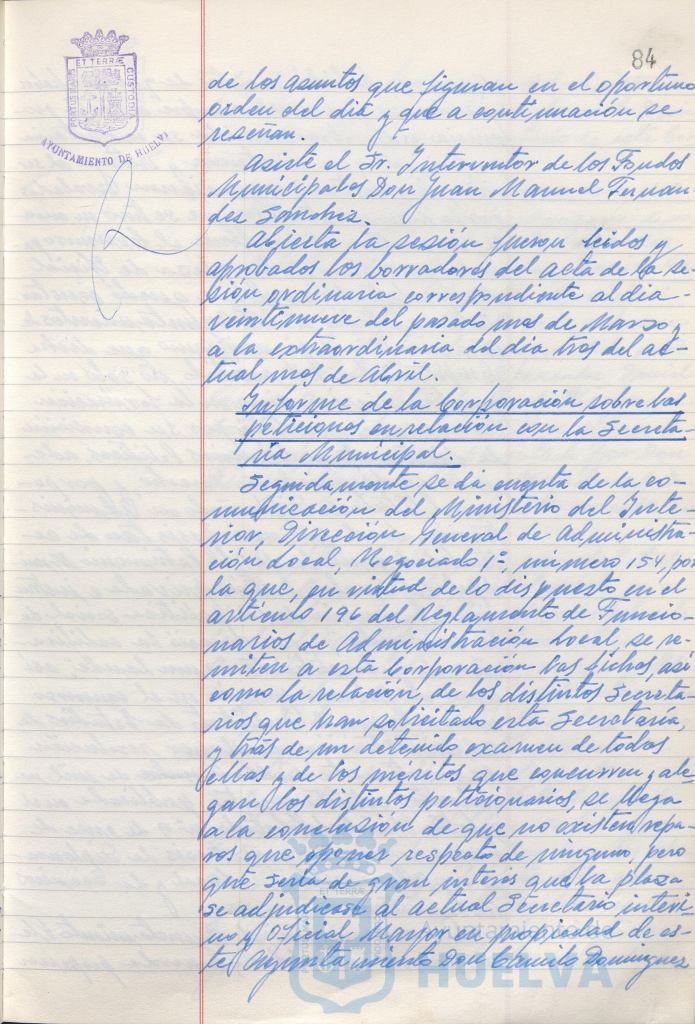 84
ET TERRÆ
CUSTODIA
PORTUS MARIS
AYUNTAMIENTO DE HUELVA
de los asuntos que figuran en el oportuno
orden del dia y que a continuación se
reseñan.
Asiste el Sr. Interventor de los Fondos
Municipales Don Juan Manuel Fernan
dez Sanchez.
Abierta la sesión fueron leidos y
aprobados los borradores del acta de la se-
sión ordinaria correspondiente al dia
veintinueve del pasado mes de Marzo y
a la extraordinaria del dia tres del ac-
tual mes de Abril.
Informe de la Corporación sobre las
peticiones en relación con la Secreta-
ria Municipal.
Seguidamente se da cuenta de la co-
municación del Ministerio del Inte-
rior, Dirección General de Administra-
ción Local, Negociado 1º, número 154, por
la que, en virtud de lo dispuesto en el
artículo 196 del Reglamento de Funcio-
narios de Administración Local, se re-
miten a esta Corporación las fichas, así
como la relación, de los distintos Secreta-
rios que han solicitado esta Secretaría,
y tras de un detenido examen de todas
ellas y de los méritos que concurren y ale-
gan los distintos peticionarios, se llega
a la conclusión de que no existen repa-
ros que oponer respecto de ninguno, pero
que sería de gran interes que la plaza
se adjudicase al actual Secretario interi-
no y Oficial Mayor en propiedad de es-
te Ayuntamiento Don Camilo Dominguez
HUELVA